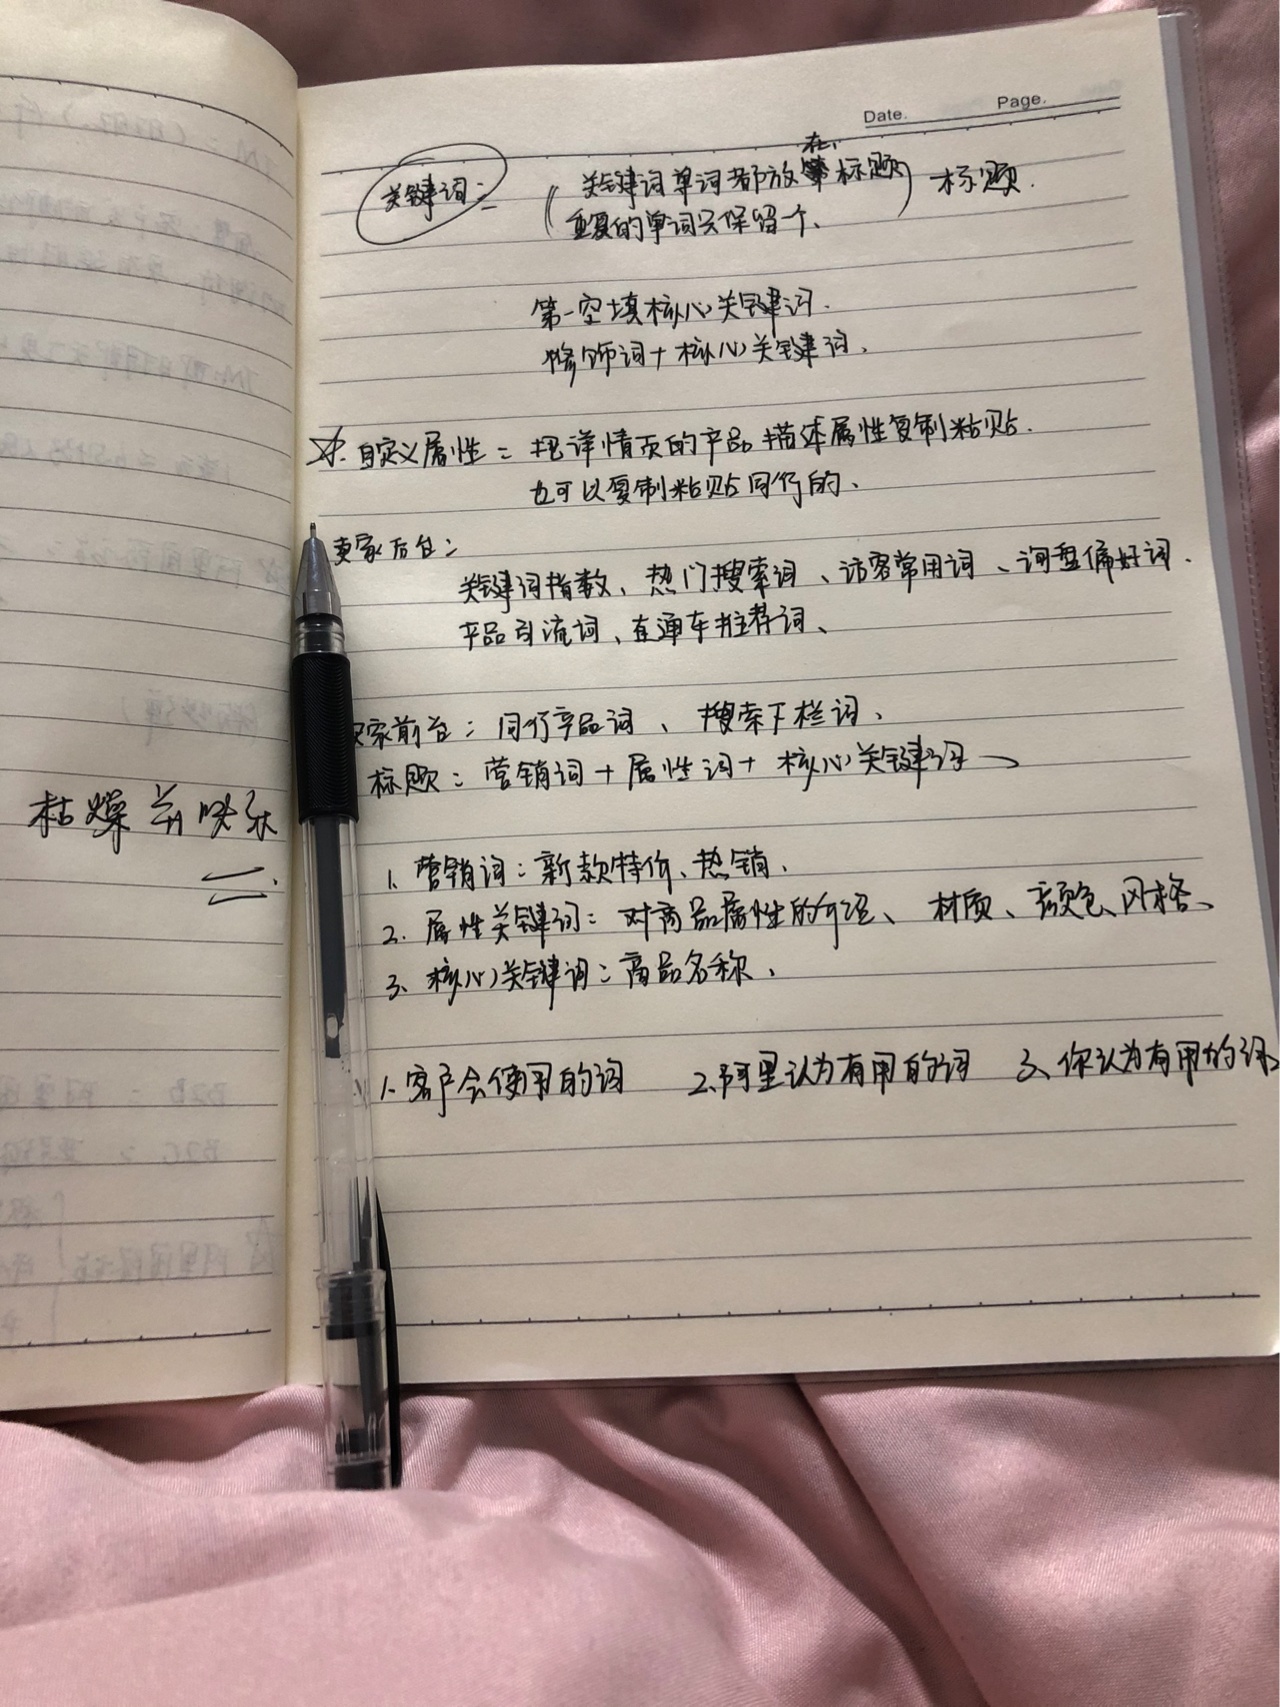 Date. Page.
关键词： （关键词单词都放在标题） 标题.
重复的单词只保留一个、
第一空填核心关键词.
修饰词+核心关键词、
☆. 自定义属性 = 把详情页的产品描述属性复制粘贴.
也可以复制粘贴同行的、
卖家后台：
关键词指数、热门搜索词、访客常用词、询盘偏好词.
产品引流词、直通车推荐词、
家前台：同行产品词、搜索下栏词、
标题：营销词+属性词+核心关键词
枯燥并快乐
1、营销词：新款特价、热销、
2、属性关键词：对商品属性的介绍、材质、颜色、风格、
3、核心关键词：商品名称、
1、客户会使用的词 2、阿里认为有用的词 3、你认为有用的词